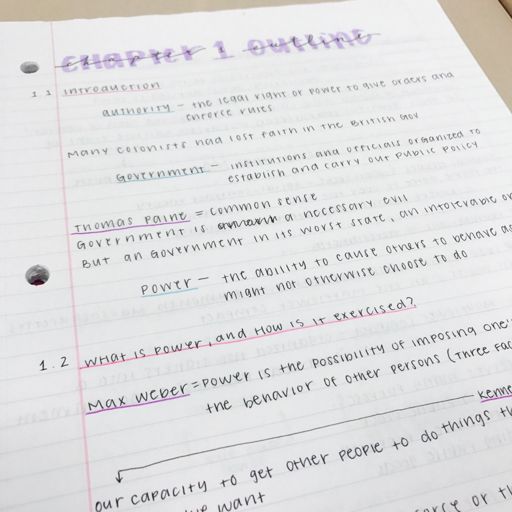 Chapter 1 Outline
1.1 Introduction
authority - the legal right or power to give orders and
enforce rules
Many colonists had lost faith in the British Gov
Government - institutions and officials organized to
establish and carry out public policy
Thomas Paine = common sense
Government is a necessary evil
But an Government in its worst state, an intolerable
Power - the ability to cause others to behave as
might not otherwise choose to do
1.2 What is power, and how is it exercised?
Max Weber = Power is the possibility of imposing one's
the behavior of other persons (Three
our capacity to get other people to do things
want
or